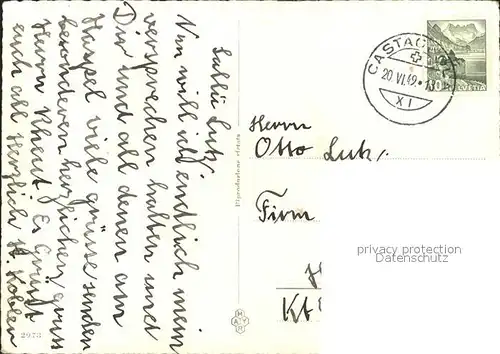 Sallü Lutz!
Nun will ich endlich mein
versprechen halten und
Dir und all denen am
Haspel viele grüsse senden
besonderen herzlichen gruss
Herrn Es Grüsst
euch all Herzlich H. Kobler
2973
HAYR
CASTAG
20.VI.49
XI
HELVETIA
Herrn
Otto Lutz.
Firm
Kt
privacy protection
Datenschutz